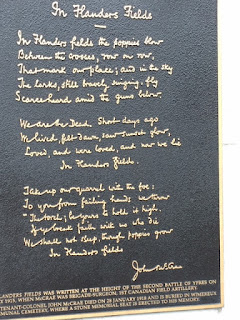 In Flanders Fields
In Flanders fields the poppies blow
Between the crosses, row on row,
That mark our place; and in the sky
The larks, still bravely singing, fly
Scarce heard amid the guns below.
We are the Dead. Short days ago
We lived, felt dawn, saw sunset glow,
Loved, and were loved, and now we lie
In Flanders fields.
Take up our quarrel with the foe:
To you from failing hands we throw
The torch; be yours to hold it high.
If ye break faith with us who die
We shall not sleep, though poppies grow
In Flanders fields
John McCrae
FLANDERS FIELDS WAS WRITTEN AT THE HEIGHT OF THE SECOND BATTLE OF YPRES ON
MAY 1915, WHEN McCRAE WAS BRIGADE-SURGEON, 1ST CANADIAN FIELD ARTILLERY
TENANT-COLONEL JOHN McCRAE DIED ON 28 JANUARY 1918 AND IS BURIED IN WIMEREUX
MUNAL CEMETERY, WHERE A STONE MEMORIAL SEAT IS ERECTED TO HIS MEMORY.